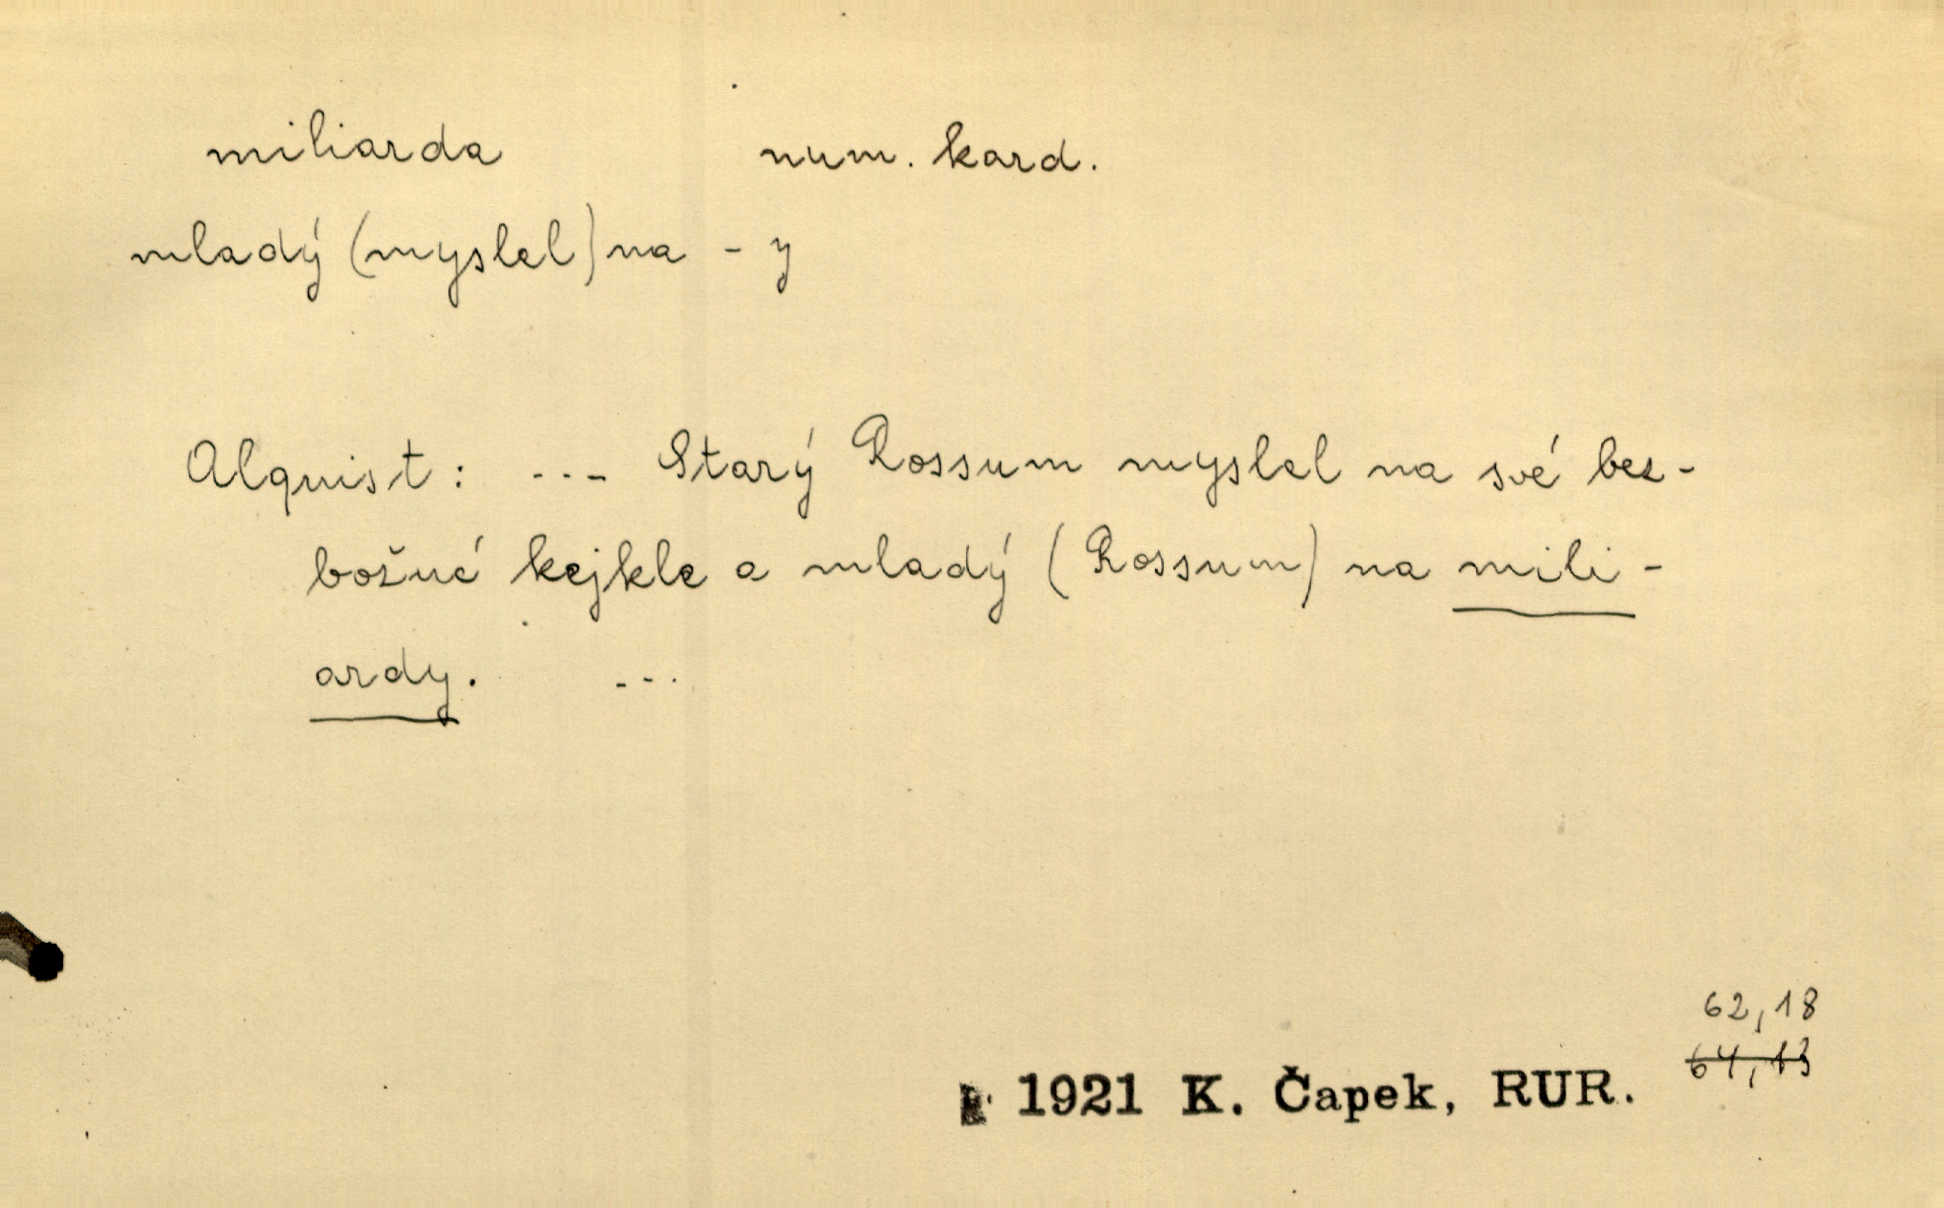 miliarda num. kard.
mladý (myslel) na - y
Alquist: --- Starý Rossum myslel na své bez-
božné kejkle a mladý (Rossum) na mili-
ardy. ---
62,18
64,13
1921 K. Čapek, RUR.